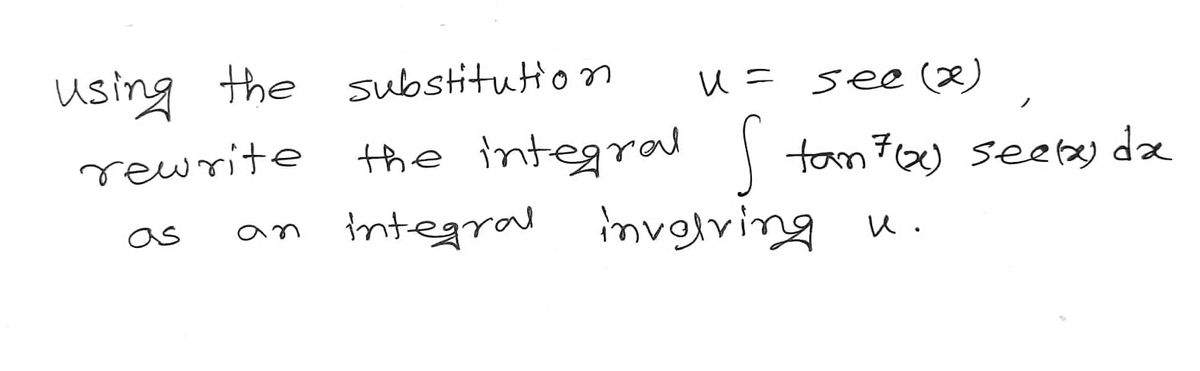 using the substitution u = sec(x),
rewrite the integral ∫ tan⁷(x) sec(x) dx
as an integral involving u.